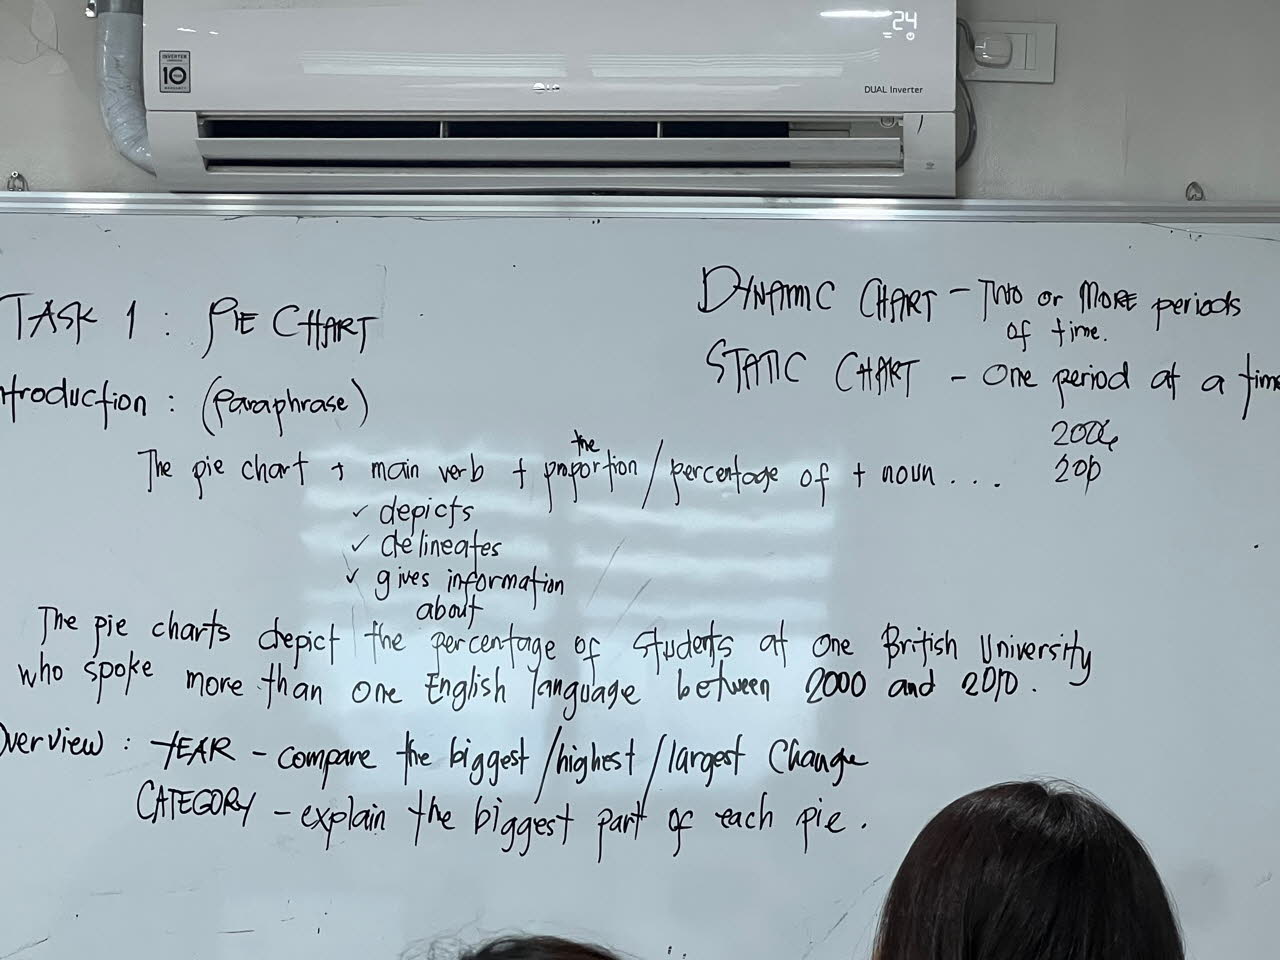 24
INVERTER
10
LG
DUAL Inverter
TASK 1 : PIE CHART
DYNAMIC CHART - TWO or MORE periods
of time.
STATIC CHART - One period at a time
ntroduction : (Paraphrase)
The pie chart + main verb + the proportion / percentage of + noun ...
depicts
delineates
gives information
about
The pie charts depict the percentage of students at one British University
who spoke more than one English language between 2000 and 2010.
Overview : YEAR - compare the biggest / highest / largest Change
CATEGORY - explain the biggest part of each pie.